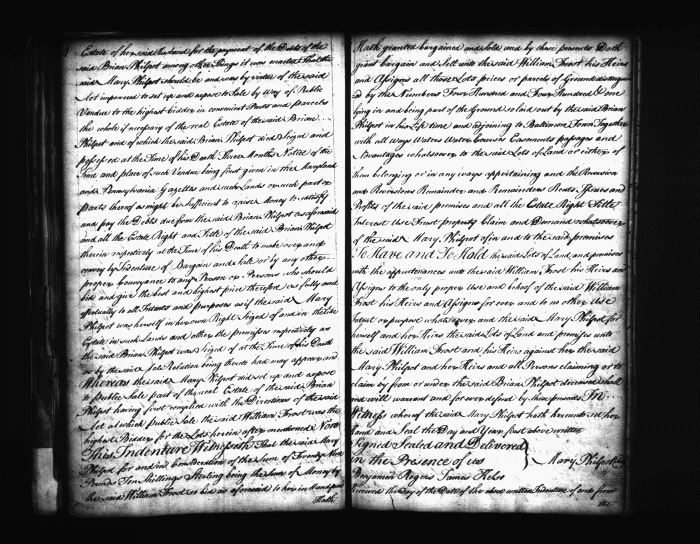 Estate of her said Husband for the payment of the Debts of the
said Brian Philpot among other things it was enacted That the
said Mary Philpot should be and was by virtue of the said
Act impowered to set up and expose to Sale by Way of Public
Vendue to the highest bidder in convenient Parts and parcels
the whole if necessary of the real Estate of the said Brian
Philpot and of which the said Brian Philpot died Seized and
possessed at the Time of his Death Three Months Notice of the
Time and place of such Vendue being first given in the Maryland
and Pennsylvania Gazettes and such Lands or such part or
parts thereof as might be sufficient to raise Money to satisfy
and pay the Debts due from the said Brian Philpot as aforesaid
and all the Estate Right and Title of the said Brian Philpot
therein respectively at the Time of his Death to make over and
convey by Indenture of Bargain and Sale or by any other
proper Conveyance to any Person or Persons who should
bid and give the best and highest price therefor as fully and
effectually to all Intents and purposes as if the said Mary
Philpot was herself in her own Right Seized of and in the like
Estate in such Lands and other the premises respectively as
the said Brian Philpot was Seized of at the Time of his Death
as by the said Act Relation being thereto had may appear and
Whereas the said Mary Philpot did set up and expose
to public Sale part of the real Estate of the said Brian
Philpot having first complied with the Directions of the said
Act at which Public Sale the said William Trost was the
highest Bidder for the Lots herein after mentioned Now
This Indenture Witnesseth That the said Mary
Philpot for and in Consideration of the Sum of Twenty
Pounds Ten Shillings Sterling being the Sum of Money by
the said William Trost so bid as aforesaid to her in Hand paid
Hath
Hath granted bargained and Sold and by these presents Doth
grant bargain and Sell unto the said William Trost his Heirs
and Assigns all those Lots pieces or parcels of Ground
ed by the Numbers Four Hundred and Four Hundred & one
lying in and being part of the Ground so laid out by the said Brian
Philpot in his Life time and adjoining to Baltimore Town Together
with all Ways Waters Water Courses Easements passages and
Advantages whatsoever to the said Lots of Land or either of
them belonging or in any ways appertaining and the Reversion
and Reversions Remainder and Remainders Rents Issues and
Profits of the said premises and all the Estate Right Title
Interest Use Trust property Claim and Demand whatsoever
of the said Mary Philpot of in and to the said premises
To Have and To Hold the said Lots of Land and premises
with the appurtenances unto the said William Trost his Heirs and
Assigns to the only proper Use and behoof of the said William
Trost his Heirs and Assigns for ever and to no other Use
Intent or purpose whatsoever and the said Mary Philpot for
herself and her Heirs the said Lots of Land and premises unto
the said William Trost and his Heirs against her the said
Mary Philpot and her Heirs and all Persons claiming or to
claim by from or under the said Brian Philpot deceased shall
and will warrant and for ever defend by these presents In
Witness whereof the said Mary Philpot hath hereunto set her
Hand and Seal the Day and Year first above written
Signed Sealed and Delivered
in the Presence of us } Mary Philpot
Benjamin Rogers James Kelso
Received the Day of the Date of the above written Indenture of and from
the